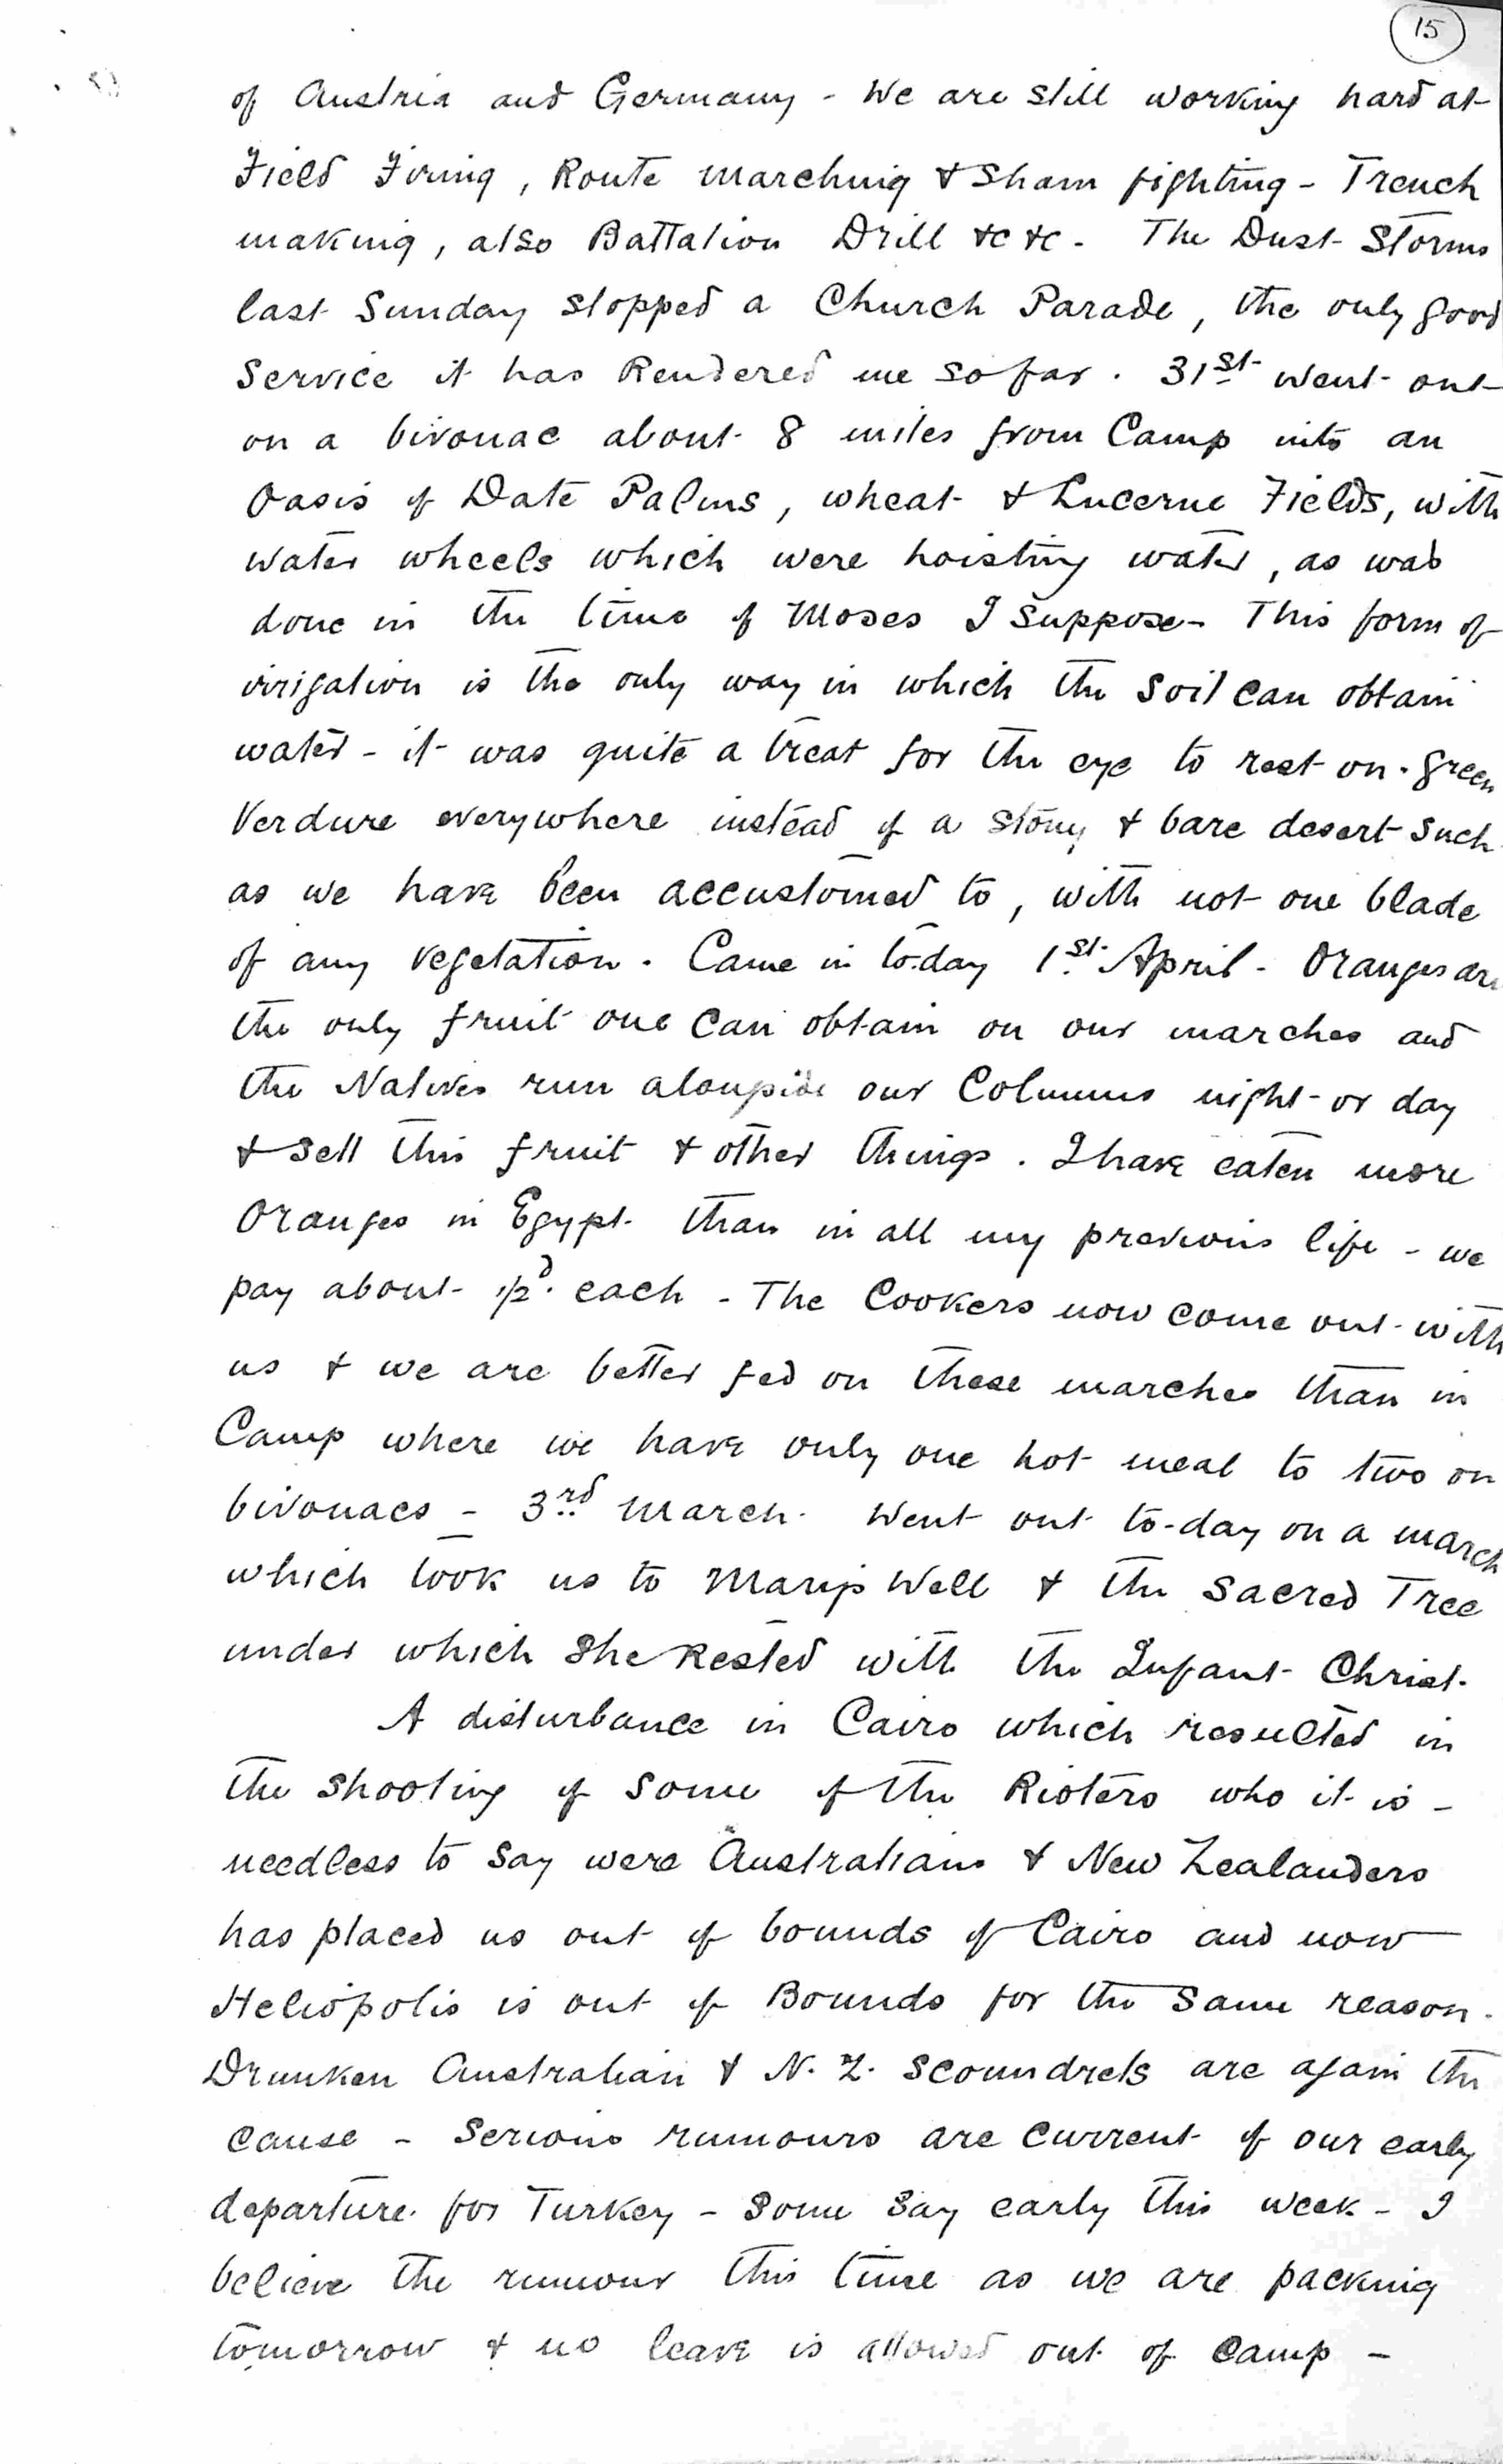 15
of Austria and Germany - We are still working hard at
Field Firing, Route marching & Sham fighting - Trench
making, also Battalion Drill &c &c - The Dust Storms
last Sunday stopped a Church Parade, the only good
Service it has Rendered me so far. 31st went out
on a bivouac about 8 miles from Camp into an
Oasis of Date Palms, wheat & Lucerne Fields, with
water wheels which were hoisting water, as was
done in the time of Moses I suppose - This form of
irrigation is the only way in which the soil can obtain
water - it was quite a treat for the eye to rest on green
Verdure everywhere instead of a stony & bare desert such
as we have been accustomed to, with not one blade
of any vegetation. Came in to-day 1st April - Oranges are
the only fruit one can obtain on our marches and
the Natives run alongside our Columns night or day
& sell this fruit & other things. I have eaten more
Oranges in Egypt than in all my previous life - we
pay about 1/2d. each - The Cookers now come out with
us & we are better fed on these marches than in
Camp where we have only one hot meal to two on
bivouacs - 3rd March. Went out to-day on a march
which took us to Marys Well & the Sacred Tree
under which She Rested with the Infant Christ.
A disturbance in Cairo which resulted in
the shooting of some of the Rioters who it is -
needless to say were Australians & New Zealanders
has placed us out of bounds of Cairo and now
Heliopolis is out of Bounds for the same reason.
Drunken Australian & N. Z. scoundrels are again the
cause - Serious rumours are current of our early
departure for Turkey - Some say early this week - I
believe the rumour this time as we are packing
tomorrow & no leave is allowed out of Camp -